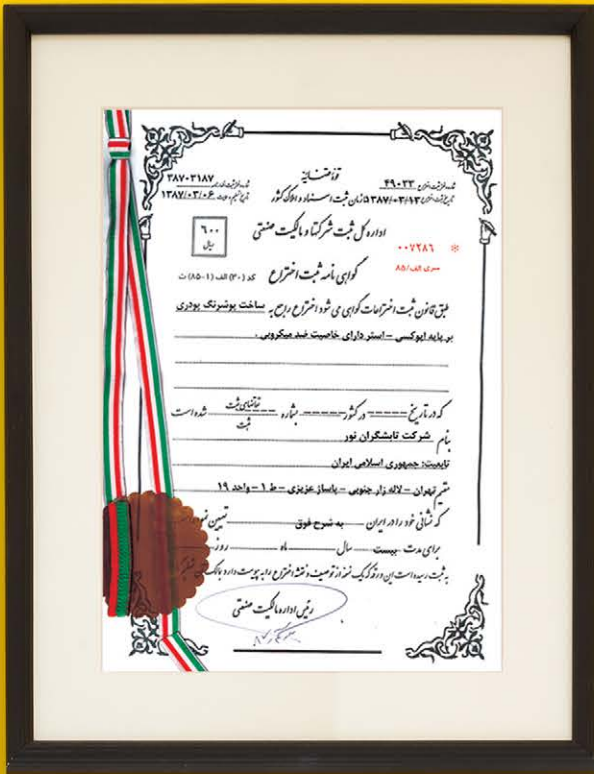 قوه قضائیه
شماره ثبت اختراع: ۴۹۰۳۳
تاریخ ثبت اختراع: ۱۳۸۷/۰۳/۱۳
سازمان ثبت اسناد و املاک کشور
۳۸۷۰۳۱۸۷
۱۳۸۷/۰۳/۰۶
اداره کل ثبت شرکتها و مالکیت صنعتی
۶۰۰
ریال
* ۰۰۷۲۸۶
سری الف/۸۵
گواهی نامه ثبت اختراع
کد (۳۰) الف (۱-۸۵) ث
طبق قانون ثبت اختراعات گواهی می شود اختراع راجع به ساخت پوشرنگ پودری
بر پایه اپوکسی – استر دارای خاصیت ضد میکروبی .
که در تاریخ ----- در کشور ----- بشماره ----- تقاضای ثبت
ثبت شده است
بنام شرکت تابشگران نور
تابعیت: جمهوری اسلامی ایران
مقیم تهران – لاله زار جنوبی – پاساژ عزیزی – ط ۱ – واحد ۱۹
که نشانی خود را در ایران --- به شرح فوق --- تعیین
برای مدت بیست --- سال --- ماه --- روز
به ثبت رسیده است این ورقه که یک نسخه از توصیف و نقشه اختراع را به پیوست دارد
رئیس اداره مالکیت صنعتی